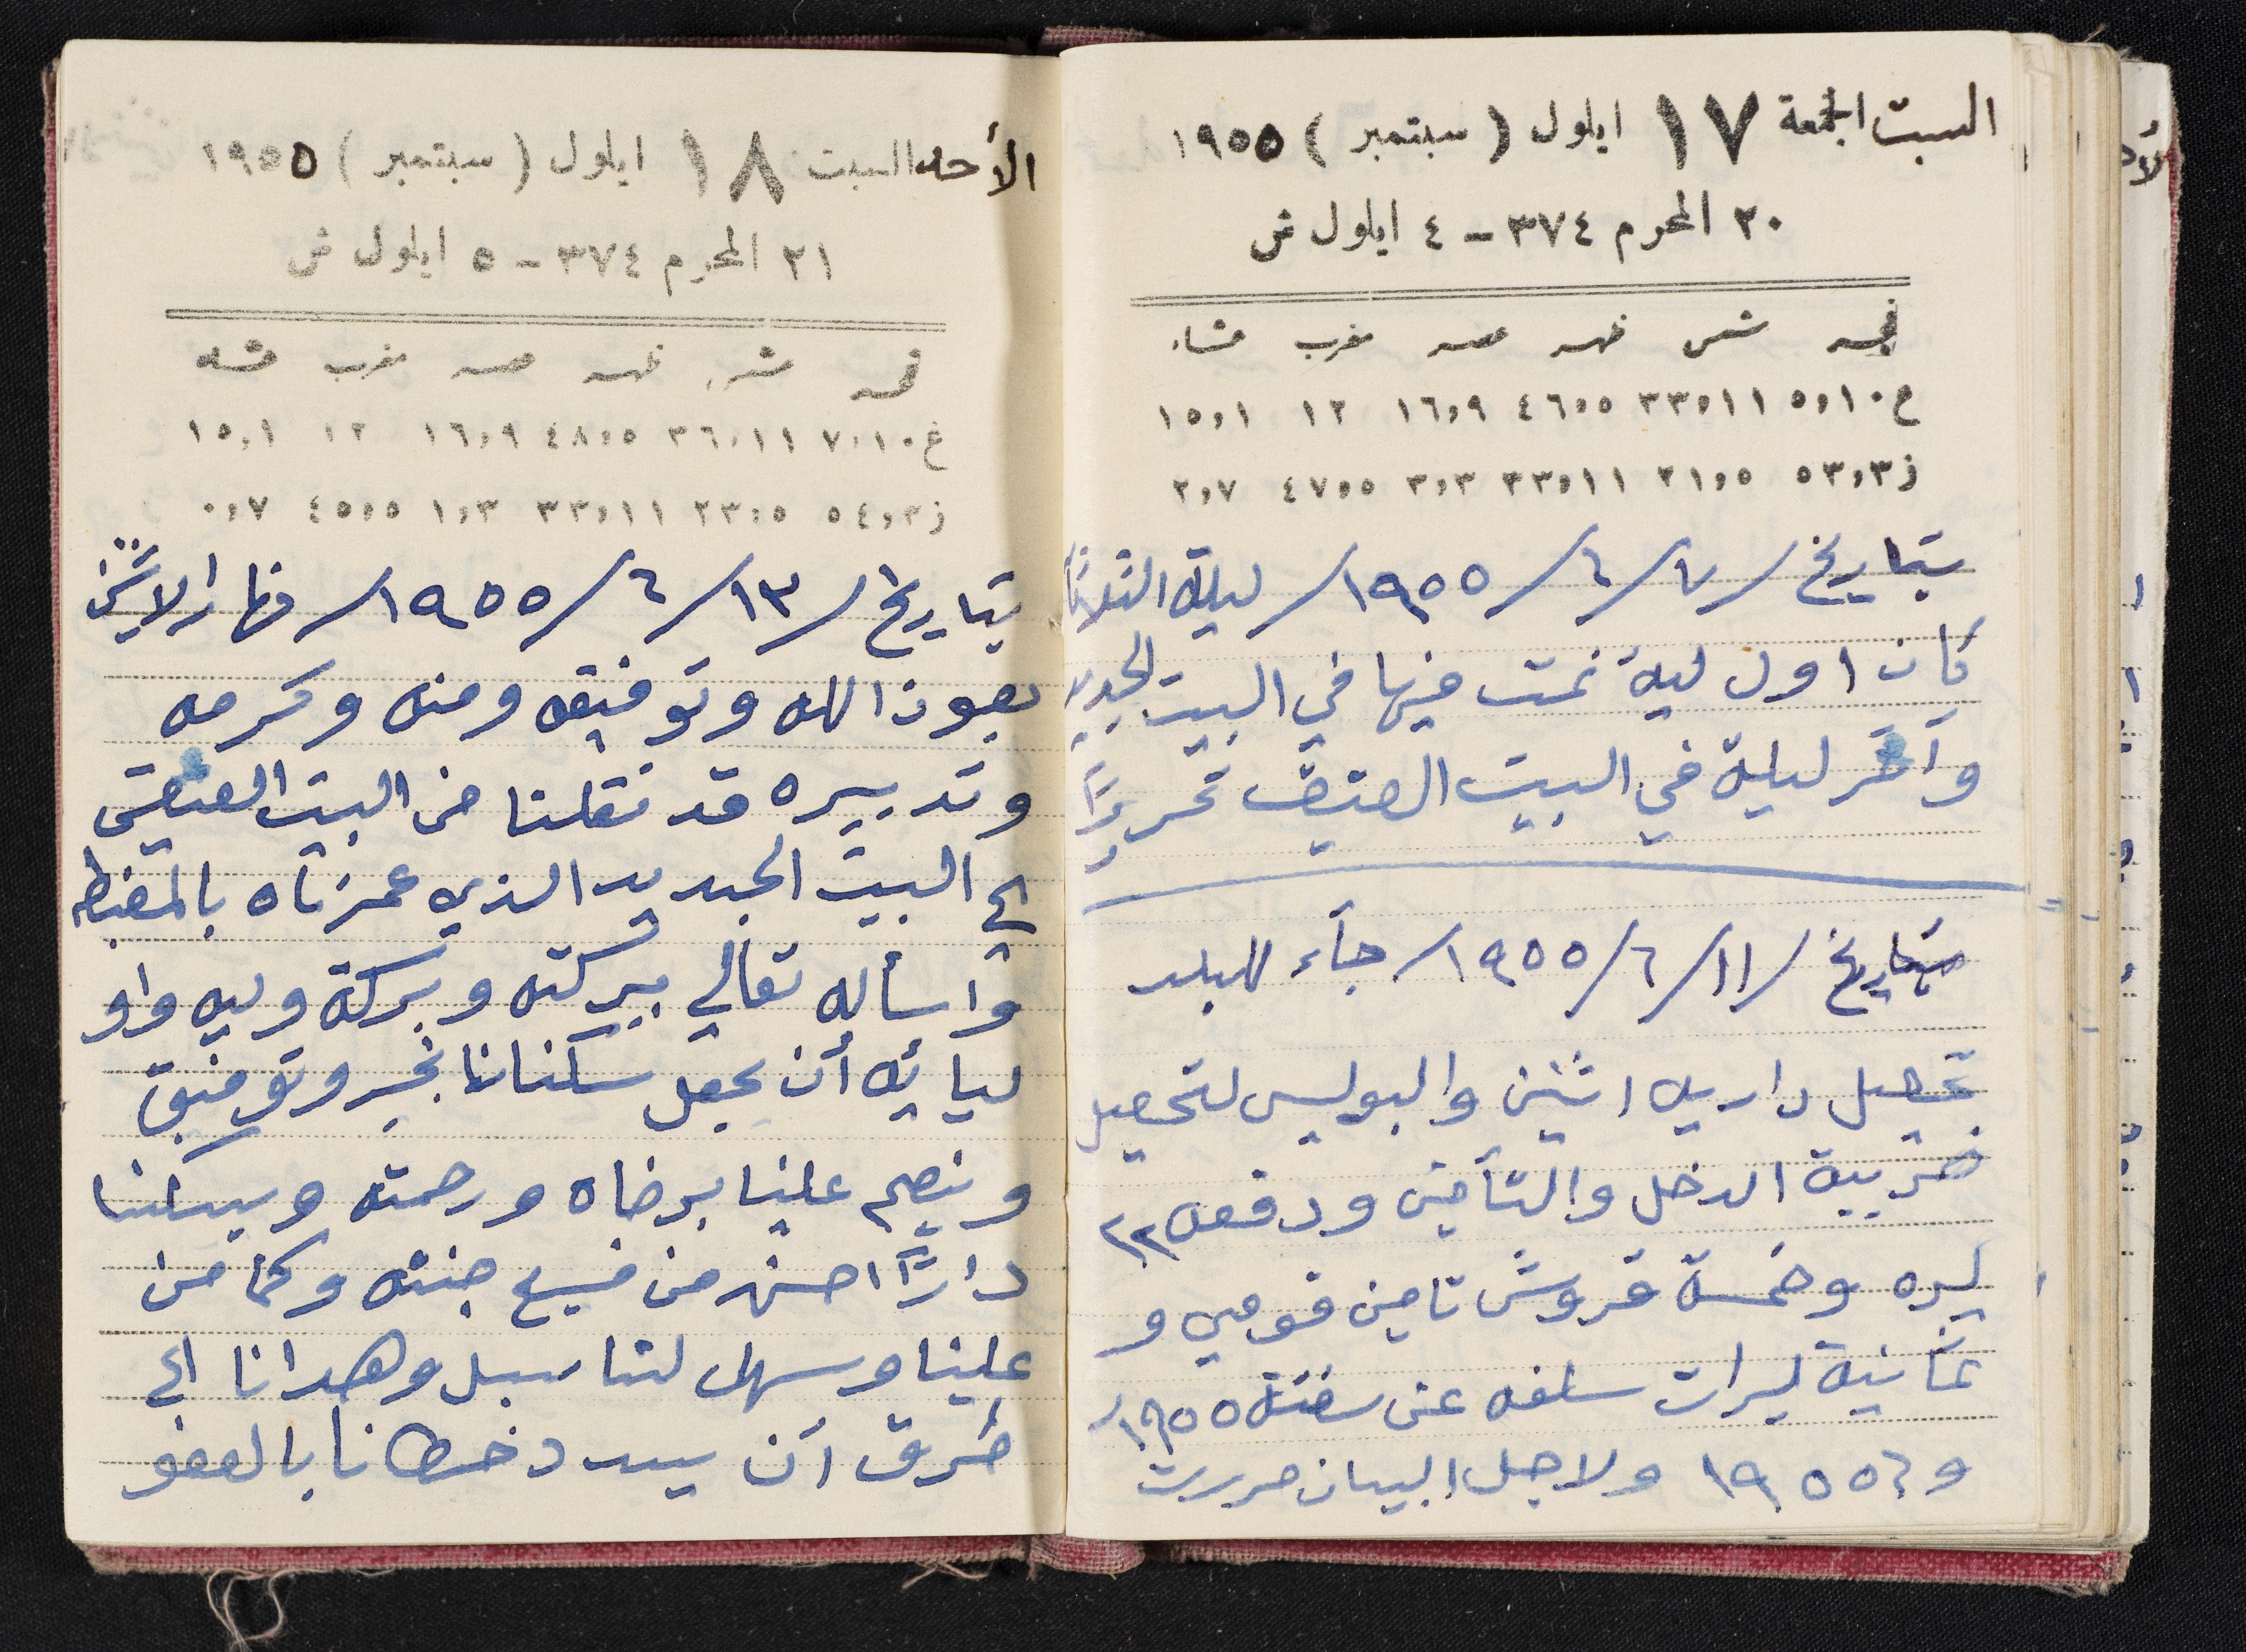 السبت الجمعة ١٧ ايلول (سبتمبر) ١٩٥٥
٢٠ المحرم ٣٧٤ - ٤ ايلول ش
فجر شمس ظهر عصر مغرب عشاء
ع ٥،١٠ ٣٣،١١ ٤٦،٥ ١٦،٩ ١٢ ١٥،١
ز ٥٣،٣ ٢١،٥ ٣٣،١١ ٣،٣ ٤٧،٥ ٢،٧
بتاريخ /٧/٦/١٩٥٥/ ليلة الثلاثا
كان اول ليلة نمت فيها في البيت الجديد
وآخر ليلة في البيت العتيق تحريرًا
بتاريخ /١١/٦/١٩٥٥/ جآء للبلد
تحصل داريه اثنين والبوليس لتحصيل
ضريبة الدخل والتأمين ودفعه ٢٢
ليره وخمسة قروش تامين قومي و
ثمانية ليرات سلفه عن سنة ١٩٥٥/
و ١٩٥٥ ولاجل البيان حررت
الأحد السبت ١٨ ايلول (سبتمبر) ١٩٥٥
٢١ المحرم ٣٧٤ - ٥ ايلول ش
فجر شمس ظهر عصر مغرب عشاء
غ ٧،١٠ ٣٦،١١ ٤٨،٥ ١٦،٩ ١٢ ١٥،١
ز ٥٤،٣ ٢٣،٥ ٣٣،١١ ١،٣ ٤٥،٥ ٠،٧
بتاريخ /١٣/٦/١٩٥٥/ نهار الاثنين
بعون الله وتوفيقه ومنه وكرمه
وتدبيره قد نقلنا من البيت العتيق
الى البيت الجديد الذي عمرناه بالمغبطه
واسأله تعالي ببركته وبركة وليه واو
ليائه أن يجعل سكنانا بخير وتوفيق
وينعم علينا برضاه ورحمته ويسكننا
دارًا احسن من فسيح جنته وكما من
علينا وسهل لنا سبل وهدانا الى
طريق أن يسدد خطانا بالعفو